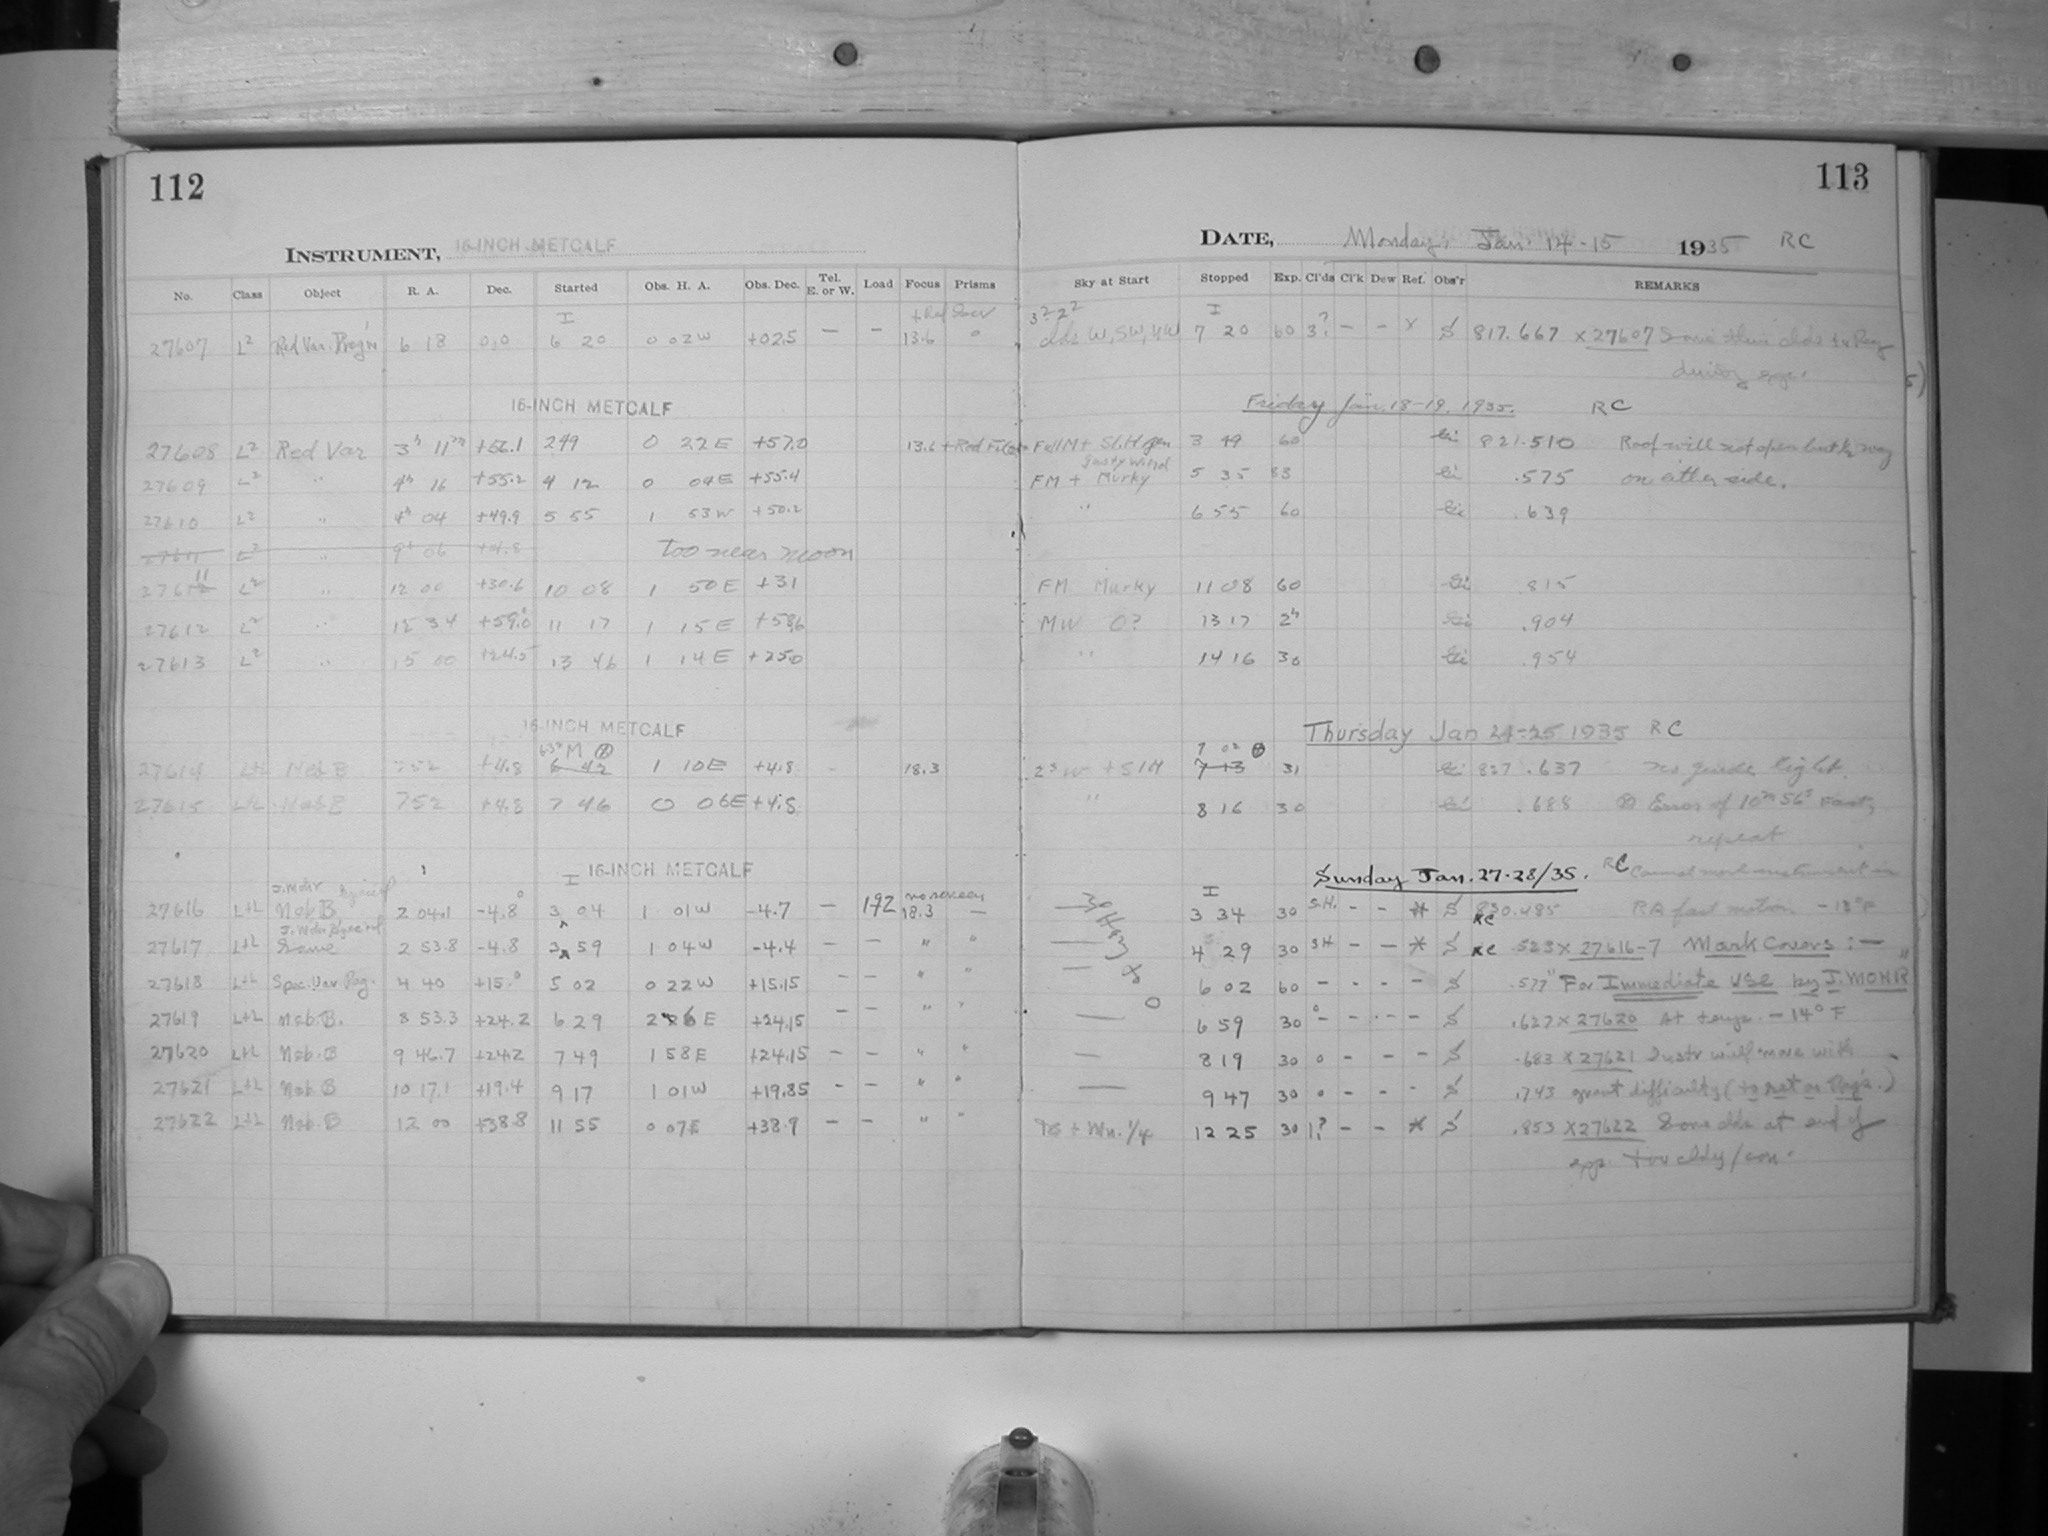 112
113
INSTRUMENT, 16-INCH METCALF
DATE, Monday, Jan. 14-15 1935 RC
No. Class Object R. A. Dec. Started Obs. H. A. Obs. Dec. Tel. E. or W. Load Focus Prisms Sky at Start Stopped Exp. Cl'ds Cl'k Dew Ref. Obs'r REMARKS
27607 L2 Red Var. 6 18 0,0 6 20 0 02W +02.5 — — 13.6 0 W, SW, 7 20 60 3? — — x S 817.667 x 27607 Some
during
16-INCH METCALF Friday Jan. 18-19. 1935. RC
27608 L2 Red Var 3h 11m +56.1 2 49 0 22E +57.0 13.6 + Red Full M + 3 49 60 821.510 Roof will not open but
Gusty wind
27609 L2 " 4h 16 +55.2 4 12 0 04E +55.4 FM + Murky 5 35 83 .575 on either side.
27610 L2 " 4h 04 +49.9 5 55 1 53W +50.2 " 6 55 60 .639
27611 L2 " 9h 06 +4.8 too near moon
27611 L2 " 12 00 +30.6 10 08 1 50E +31 FM Murky 11 08 60 .815
27612 L2 " 12 34 +59.0 11 17 1 15E +58.6 MW 0? 13 17 2h .904
27613 L2 " 15 00 +24.5 13 46 1 14E +25.0 " 14 16 30 .954
16-INCH METCALF Thursday Jan 24-25 1935 RC
7 02
27614 L+L Neb B 7 52 +4.8 6 42 1 10E +4.8 18.3 7 13 31 827.637 no guide light.
27615 L+L Neb B 7 52 +4.8 7 46 0 06E +4.8 " 8 16 30 .688 Error of 10m 56s Fast,
repeat
16-INCH METCALF Sunday Jan. 27-28/35. RC Cannot move instrument in
J. Mohr Special no screen
27616 L+L Neb B, 2 04.1 -4.8 3 04 1 01W -4.7 — 192 18.3 — 3 34 30 S.H. - - * S 830.485 RA fast motion -13°F
27617 L+L Same 2 53.8 -4.8 3 59 1 04W -4.4 — — " " 4 29 30 SH — — * S RC .523 x 27616-7 Mark Covers:—
27618 L+L Spec. Var Reg. 4 40 +15.0 5 02 0 22W +15.15 — — " " — 6 02 60 - - - - S .577 "For Immediate Use by J. MOHR"
27619 L+L Neb. B. 8 53.3 +24.2 6 29 2 26E +24.15 — — " " — 6 59 30 0 - - - - S .627 x 27620 At temp. -14° F
27620 L+L Neb. B 9 46.7 +24.2 7 49 1 58E +24.15 — — " " — 8 19 30 0 - - - S .683 x 27621 Instr will move with
27621 L+L Neb B 10 17.1 +19.4 9 17 1 01W +19.85 — — " " — 9 47 30 0 - - - S .743 great difficulty (to set on Reg's.)
27622 L+L Neb. B 12 00 +38.8 11 55 0 07E +38.9 — — " " + Mn. 1/4 12 25 30 1? — — * S .853 x 27622 Some clds at end of
exp.